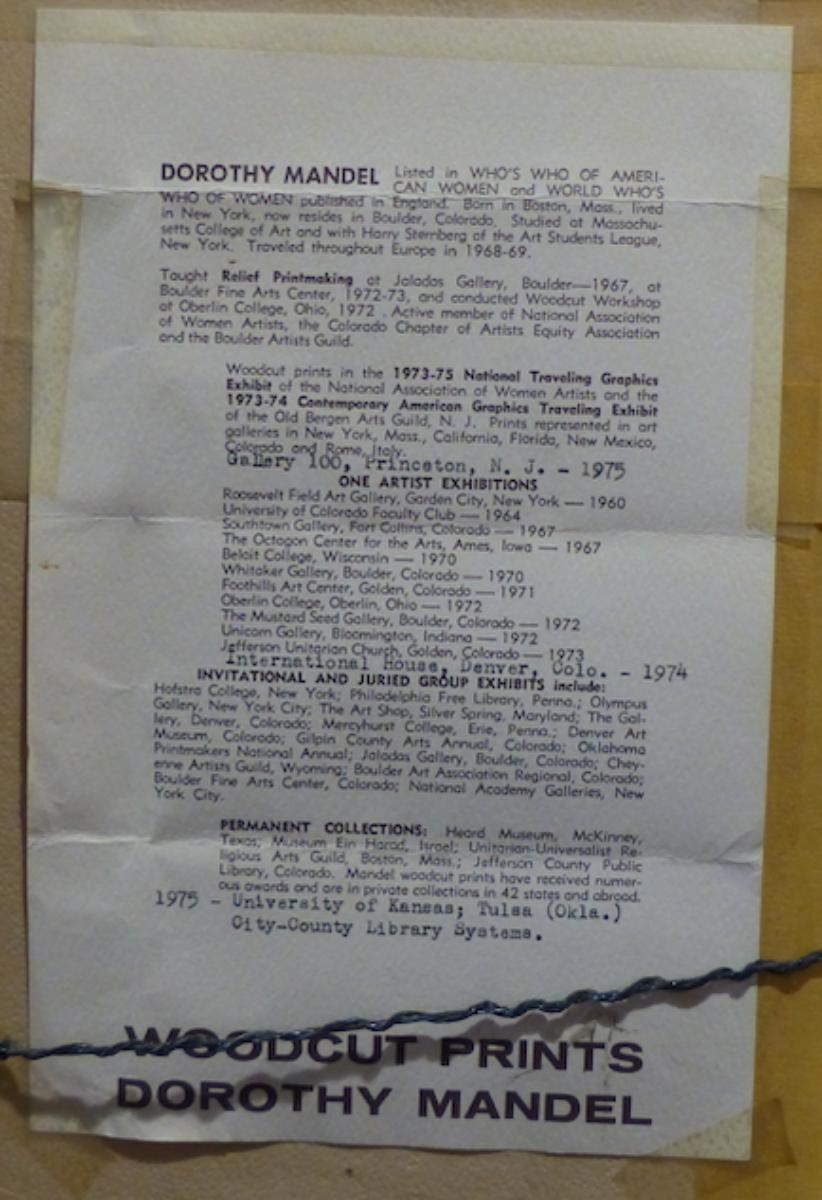 DOROTHY MANDEL Listed in WHO'S WHO OF AMERI-
CAN WOMEN and WORLD WHO'S
WHO OF WOMEN published in England. Born in Boston, Mass., lived
in New York, now resides in Boulder, Colorado. Studied at Massachu-
setts College of Art and with Harry Sternberg of the Art Students League,
New York. Traveled throughout Europe in 1968-69.
Taught Relief Printmaking at Jaladas Gallery, Boulder—1967, at
Boulder Fine Arts Center, 1972-73, and conducted Woodcut Workshop
at Oberlin College, Ohio, 1972 . Active member of National Association
of Women Artists, the Colorado Chapter of Artists Equity Association
and the Boulder Artists Guild.
Woodcut prints in the 1973-75 National Traveling Graphics
Exhibit of the National Association of Women Artists and the
1973-74 Contemporary American Graphics Traveling Exhibit
of the Old Bergen Arts Guild, N. J. Prints represented in art
galleries in New York, Mass., California, Florida, New Mexico,
Colorado and Rome, Italy.
Gallery 100, Princeton, N. J. - 1975
ONE ARTIST EXHIBITIONS
Roosevelt Field Art Gallery, Garden City, New York — 1960
University of Colorado Faculty Club — 1964
Southtown Gallery, Fort Collins, Colorado — 1967
The Octagon Center for the Arts, Ames, Iowa — 1967
Beloit College, Wisconsin — 1970
Whitaker Gallery, Boulder, Colorado — 1970
Foothills Art Center, Golden, Colorado — 1971
Oberlin College, Oberlin, Ohio — 1972
The Mustard Seed Gallery, Boulder, Colorado — 1972
Unicorn Gallery, Bloomington, Indiana — 1972
Jefferson Unitarian Church, Golden, Colorado — 1973
International House, Denver, Colo. - 1974
INVITATIONAL AND JURIED GROUP EXHIBITS include:
Hofstra College, New York; Philadelphia Free Library, Penna.; Olympus
Gallery, New York City; The Art Shop, Silver Spring, Maryland; The Gal-
lery, Denver, Colorado; Mercyhurst College, Erie, Penna.; Denver Art
Museum, Colorado; Gilpin County Arts Annual, Colorado; Oklahoma
Printmakers National Annual; Jaladas Gallery, Boulder, Colorado; Chey-
enne Artists Guild, Wyoming; Boulder Art Association Regional, Colorado;
Boulder Fine Arts Center, Colorado; National Academy Galleries, New
York City.
PERMANENT COLLECTIONS: Heard Museum, McKinney,
Texas; Museum Ein Harod, Israel; Unitarian-Universalist Re-
ligious Arts Guild, Boston, Mass.; Jefferson County Public
Library, Colorado. Mandel woodcut prints have received numer-
ous awards and are in private collections in 42 states and abroad.
1975 - University of Kansas; Tulsa (Okla.)
City-County Library Systems.
WOODCUT PRINTS
DOROTHY MANDEL